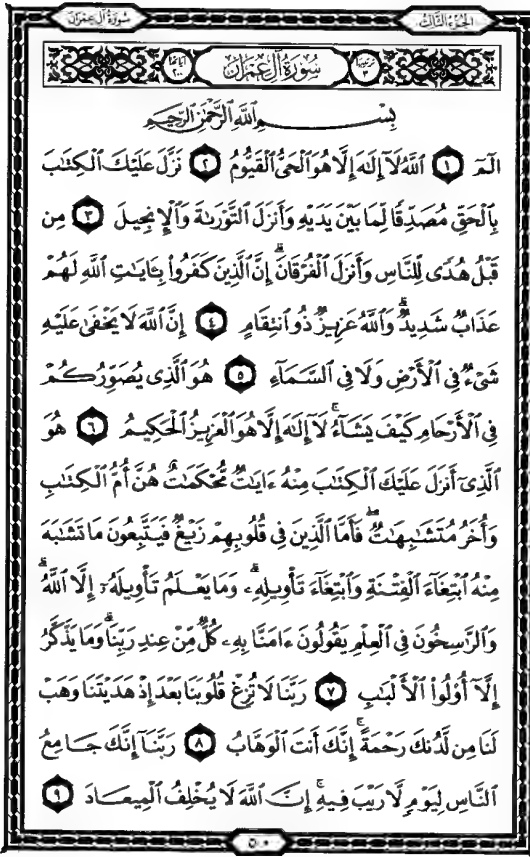 سُورَةُ آلِ عِمْرَانَ
الجُزْءُ الثَّالِثُ
سُورَةُ آلِ عِمْرَانَ
تَرْتِيبُهَا ٣
آيَاتُهَا ٢٠٠
بِسْمِ اللَّهِ الرَّحْمَٰنِ الرَّحِيمِ
الٓمٓ ١ اللَّهُ لَآ إِلَٰهَ إِلَّا هُوَ الْحَىُّ الْقَيُّومُ ٢ نَزَّلَ عَلَيْكَ الْكِتَٰبَ
بِالْحَقِّ مُصَدِّقًا لِّمَا بَيْنَ يَدَيْهِ وَأَنزَلَ التَّوْرَىٰةَ وَالْإِنجِيلَ ٣ مِن
قَبْلُ هُدًى لِّلنَّاسِ وَأَنزَلَ الْفُرْقَانَ ۗ إِنَّ الَّذِينَ كَفَرُوا۟ بِـَٔايَٰتِ اللَّهِ لَهُمْ
عَذَابٌ شَدِيدٌ ۗ وَاللَّهُ عَزِيزٌ ذُو انتِقَامٍ ٤ إِنَّ اللَّهَ لَا يَخْفَىٰ عَلَيْهِ
شَىْءٌ فِى الْأَرْضِ وَلَا فِى السَّمَآءِ ٥ هُوَ الَّذِى يُصَوِّرُكُمْ
فِى الْأَرْحَامِ كَيْفَ يَشَآءُ ۚ لَآ إِلَٰهَ إِلَّا هُوَ الْعَزِيزُ الْحَكِيمُ ٦ هُوَ
الَّذِىٓ أَنزَلَ عَلَيْكَ الْكِتَٰبَ مِنْهُ ءَايَٰتٌ مُّحْكَمَٰتٌ هُنَّ أُمُّ الْكِتَٰبِ
وَأُخَرُ مُتَشَٰبِهَٰتٌ ۖ فَأَمَّا الَّذِينَ فِى قُلُوبِهِمْ زَيْغٌ فَيَتَّبِعُونَ مَا تَشَٰبَهَ
مِنْهُ ابْتِغَآءَ الْفِتْنَةِ وَابْتِغَآءَ تَأْوِيلِهِۦ ۗ وَمَا يَعْلَمُ تَأْوِيلَهُۥٓ إِلَّا اللَّهُ ۗ
وَالرَّٰسِخُونَ فِى الْعِلْمِ يَقُولُونَ ءَامَنَّا بِهِۦ كُلٌّ مِّنْ عِندِ رَبِّنَا ۗ وَمَا يَذَّكَّرُ
إِلَّآ أُو۟لُوا۟ الْأَلْبَٰبِ ٧ رَبَّنَا لَا تُزِغْ قُلُوبَنَا بَعْدَ إِذْ هَدَيْتَنَا وَهَبْ
لَنَا مِن لَّدُنكَ رَحْمَةً ۚ إِنَّكَ أَنتَ الْوَهَّابُ ٨ رَبَّنَآ إِنَّكَ جَامِعُ
النَّاسِ لِيَوْمٍ لَّا رَيْبَ فِيهِ ۚ إِنَّ اللَّهَ لَا يُخْلِفُ الْمِيعَادَ ٩
٥٠